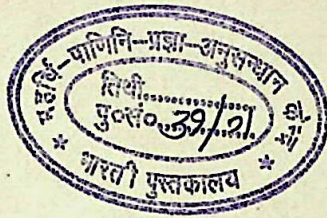 महर्षि-पाणिनि-प्रज्ञा-अनुसन्धान केन्द्र
तिथी..................
पु०सं० 39/21
* भारती पुस्तकालय *